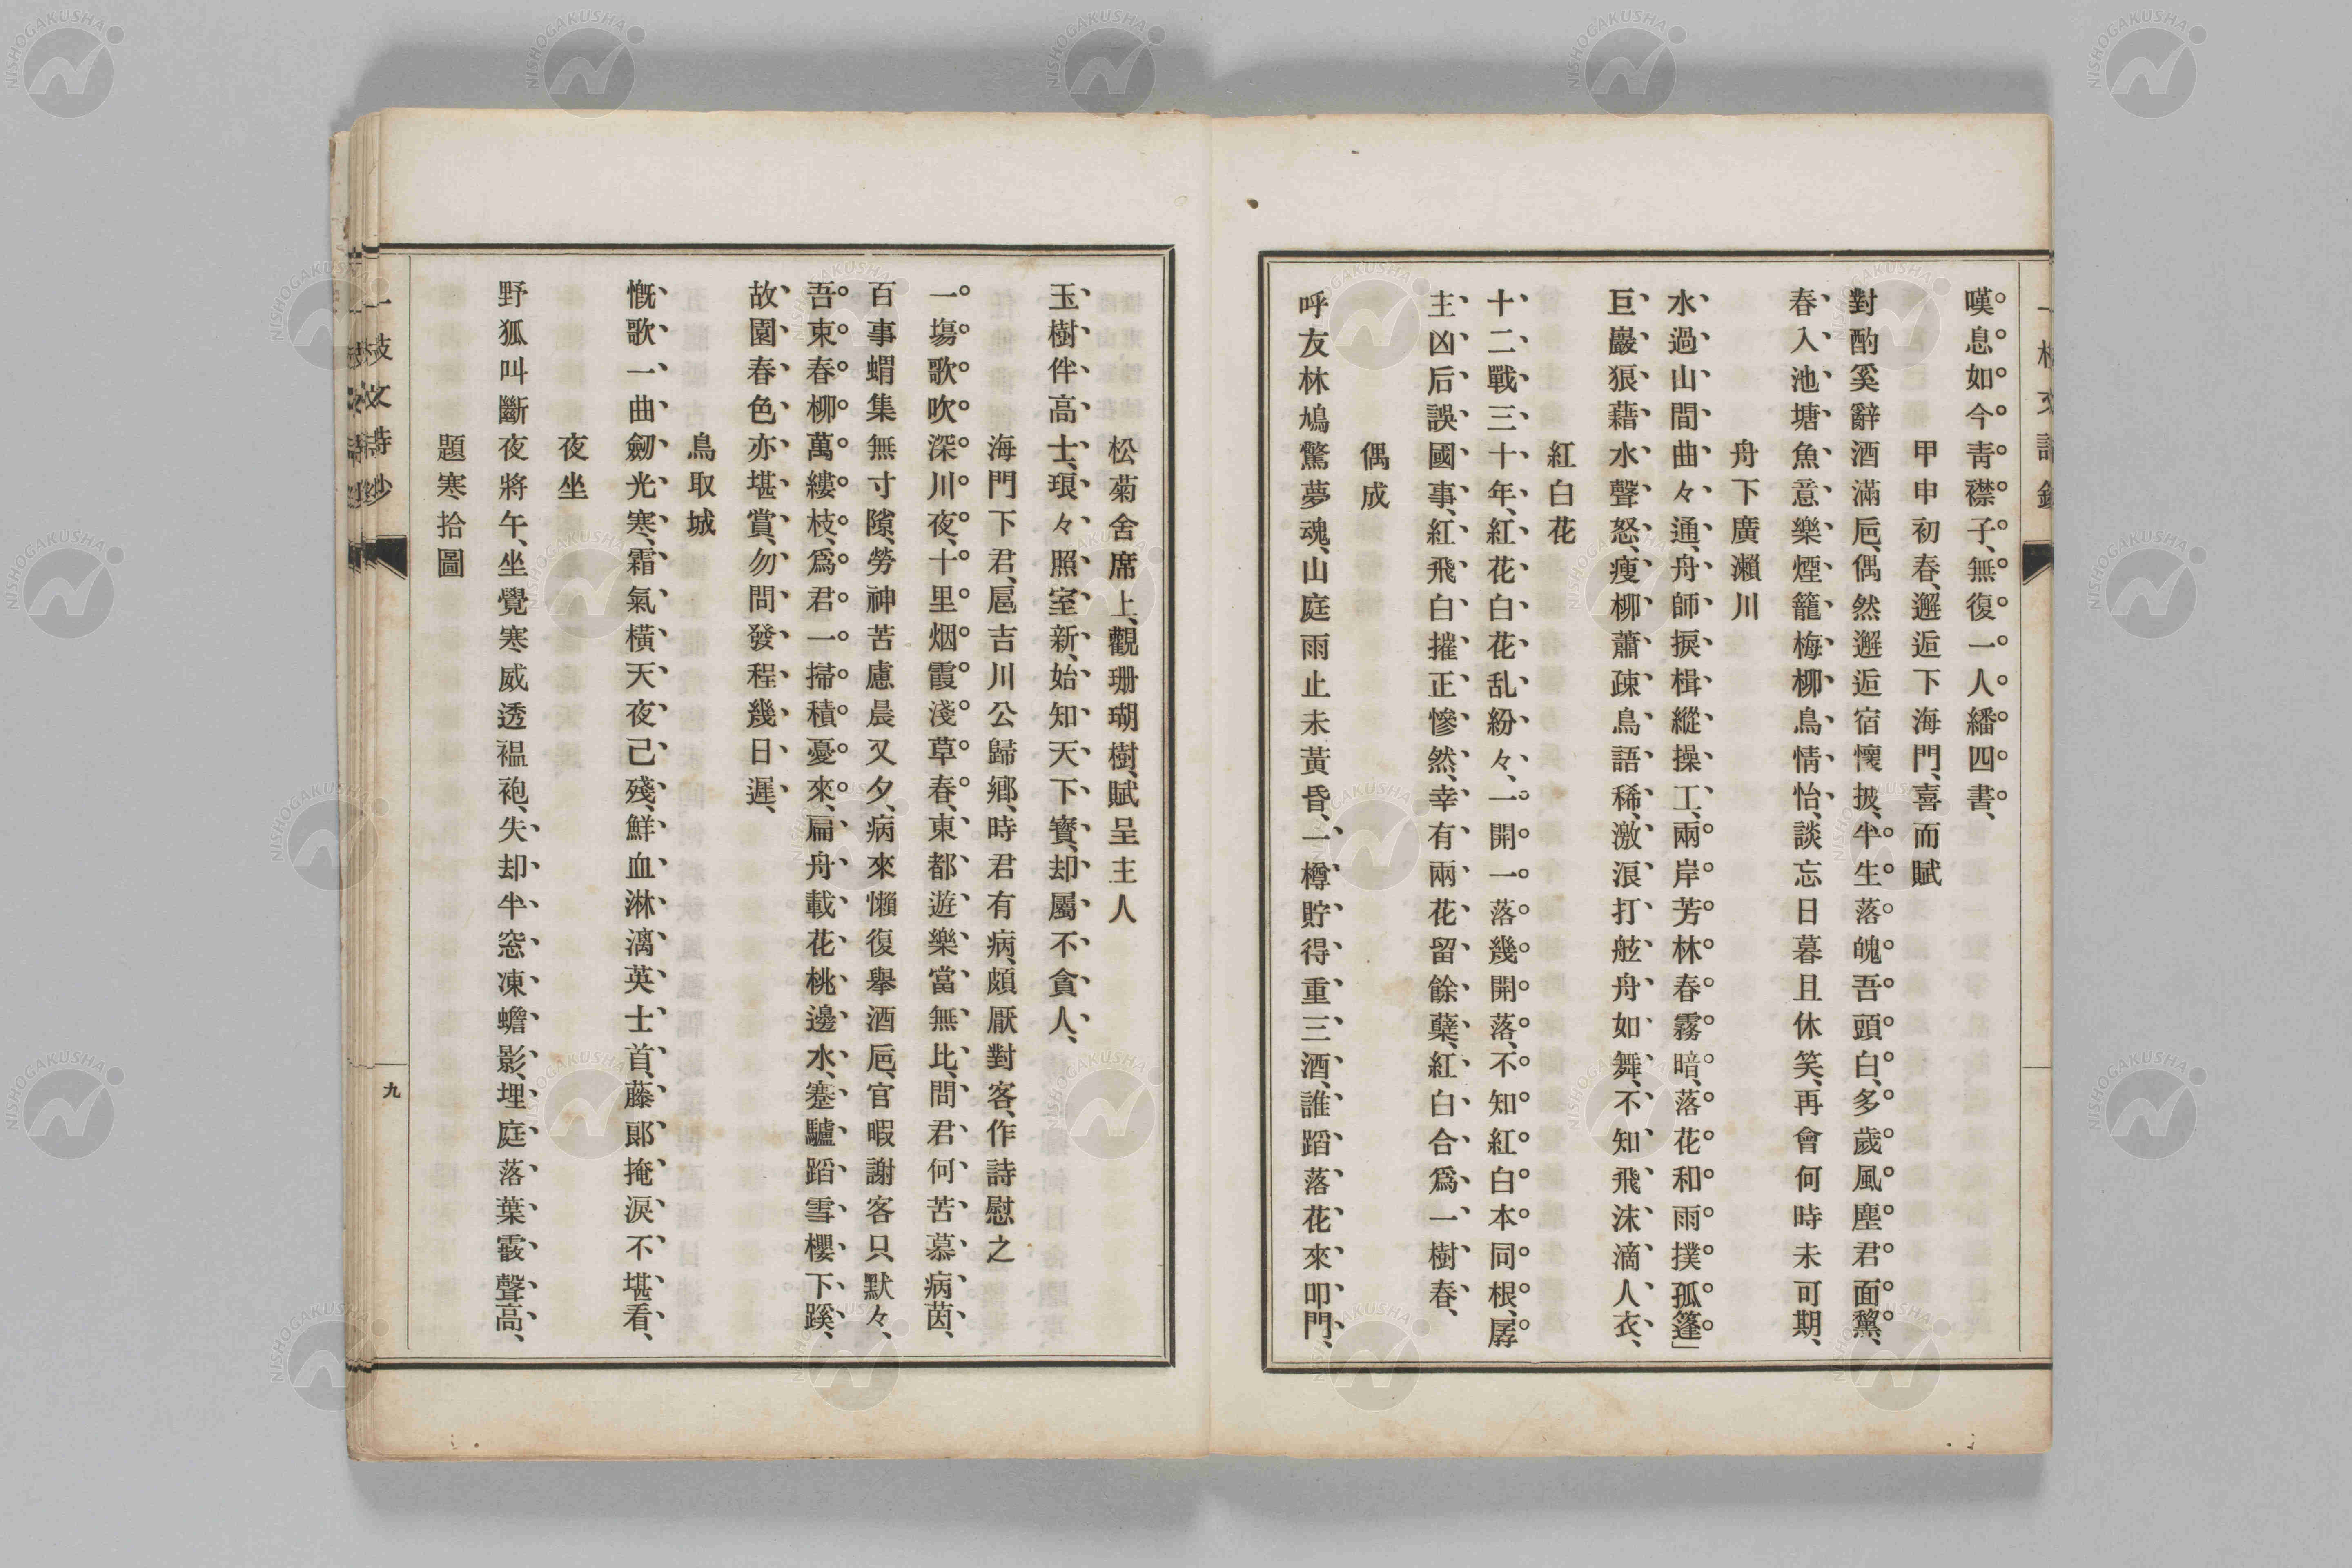 嘆息如今靑襟子、無復一人繙四書、
甲申初春、邂逅下海門、喜而賦
對酌奚辭酒滿巵、偶然邂逅宿懷披、半生落魄吾頭白、多歲風塵君面黧、
春入池塘魚意樂、煙籠梅柳鳥情怡、談忘日暮且休笑、再會何時未可期、
舟下廣瀨川
水過山間曲々通、舟師捩楫縱操工、兩岸芳林春霧暗、落花和雨撲孤篷」
巨巖狠藉水聲怒、瘦柳蕭疎鳥語稀、激浪打舷舟如舞、不知飛沫滴人衣、
紅白花
十二戰三十年、紅花白花乱紛々、一開一落幾開落、不知紅白本同根、孱
主凶后誤國事、紅飛白摧正慘然、幸有兩花留餘蘖、紅白合爲一樹春、
偶成
呼友林鳩驚夢魂、山庭雨止未黃昏、一樽貯得重三酒、誰蹈落花來叩門、
松菊舍席上、觀珊瑚樹、賦呈主人
玉樹伴高士、琅々照室新、始知天下寶、却屬不貪人、
海門下君、扈吉川公歸鄕、時君有病、頗厭對客、作詩慰之
一塲歌吹深川夜、十里烟霞淺草春、東都遊樂當無比、問君何苦慕病茵、
百事蝟集無寸隙、勞神苦慮晨又夕、病來懶復擧酒巵、官暇謝客只默々、
吾東春柳萬縷枝、爲君一掃積憂來、扁舟載花桃邊水、蹇驢蹈雪櫻下蹊、
故園春色亦堪賞、勿問發程幾日遲、
鳥取城
慨歌一曲劒光寒、霜氣橫天夜已殘、鮮血淋漓英士首、藤郞掩淚不堪看、
夜坐
野狐叫斷夜將午、坐覺寒威透褞袍、失却半窓凍蟾影、埋庭落葉霰聲高、
題寒拾圖
一枝文詩鈔
九